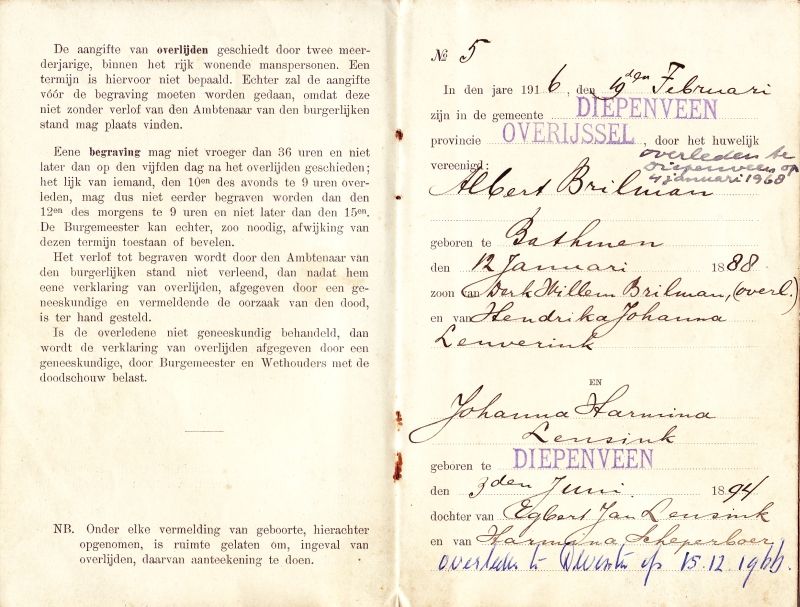 De aangifte van overlijden geschiedt door twee meer-
derjarige, binnen het rijk wonende manspersonen. Een
termijn is hiervoor niet bepaald. Echter zal de aangifte
vóór de begraving moeten worden gedaan, omdat deze
niet zonder verlof van den Ambtenaar van den burgerlijken
stand mag plaats vinden.
Eene begraving mag niet vroeger dan 36 uren en niet
later dan op den vijfden dag na het overlijden geschieden;
het lijk van iemand, den 10en des avonds te 9 uren over-
leden, mag dus niet eerder begraven worden dan den
12en des morgens te 9 uren en niet later dan den 15en.
De Burgemeester kan echter, zoo noodig, afwijking van
dezen termijn toestaan of bevelen.
Het verlof tot begraven wordt door den Ambtenaar van
den burgerlijken stand niet verleend, dan nadat hem
eene verklaring van overlijden, afgegeven door een ge-
neeskundige en vermeldende de oorzaak van den dood,
is ter hand gesteld.
Is de overledene niet geneeskundig behandeld, dan
wordt de verklaring van overlijden afgegeven door een
geneeskundige, door Burgemeester en Wethouders met de
doodschouw belast.
NB. Onder elke vermelding van geboorte, hierachter
opgenomen, is ruimte gelaten om, ingeval van
overlijden, daarvan aanteekening te doen.
No 5
In den jare 1916, den den Februari
zijn in de gemeente DIEPENVEEN
provincie OVERIJSSEL, door het huwelijk
vereenigd:
overleden te
Diepenveen op
4 januari 1968
Albert Brilman
geboren te Bathmen
den 12 Januari 1888
zoon van Derk Willem Brilman, (overl.)
en van Hendrika Johanna
Lenverink
EN
Johanna Harmina
Lensink
geboren te DIEPENVEEN
den 3den Juni 1894
dochter van Egbert Jan Lensink
en van Harmina Scheperboer
overleden te Deventer op 15.12.1966.